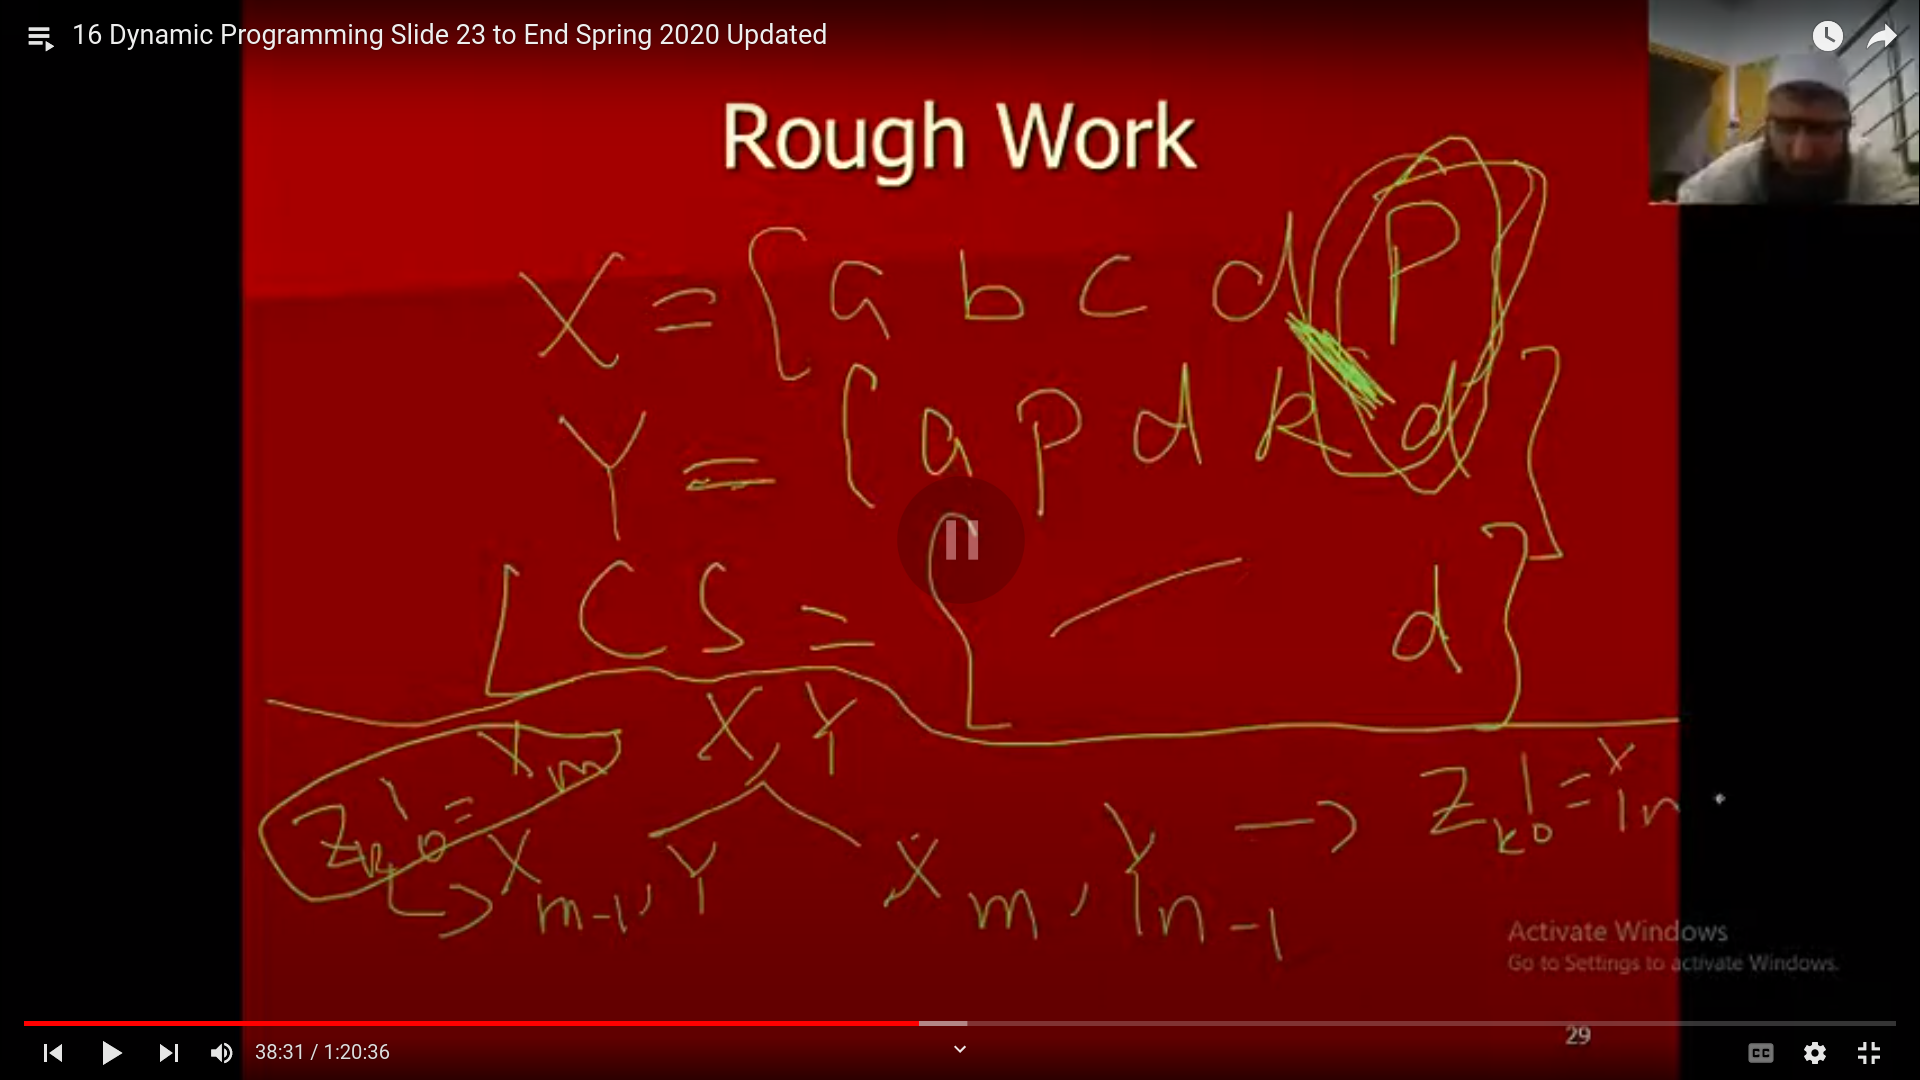 16 Dynamic Programming Slide 23 to End Spring 2020 Updated
Rough Work
X = { a b c d P
Y = { a p d k d }
LCS = { d }
X Y
X m-1, Y
X m, Y n-1
Activate Windows
Go to Settings to activate Windows.
29
38:31 / 1:20:36
CC